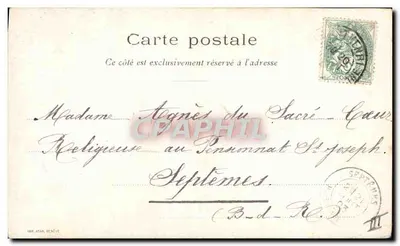 Carte postale
Ce côté est exclusivement réservé à l'adresse
Madame Agnès du Sacré-Cœur
CPAPHIL
Religieuse au Pensionnat St Joseph.
Septèmes
(B-d-R.)
III